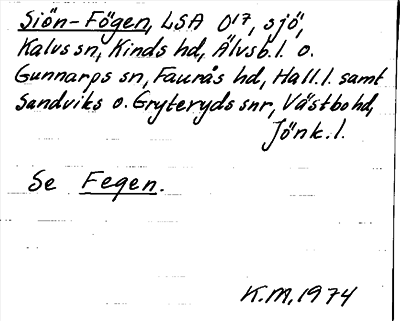 Siön-Fögen, LSA O17, sjö,
Kalvs sn, Kinds hd, Älvsb. l. o.
Gunnarps sn, Faurås hd, Hall. l. samt
Sandviks o. Gryteryds snr, Västbo hd,
Jönk. l.
Se Fegen.
K.M. 1974